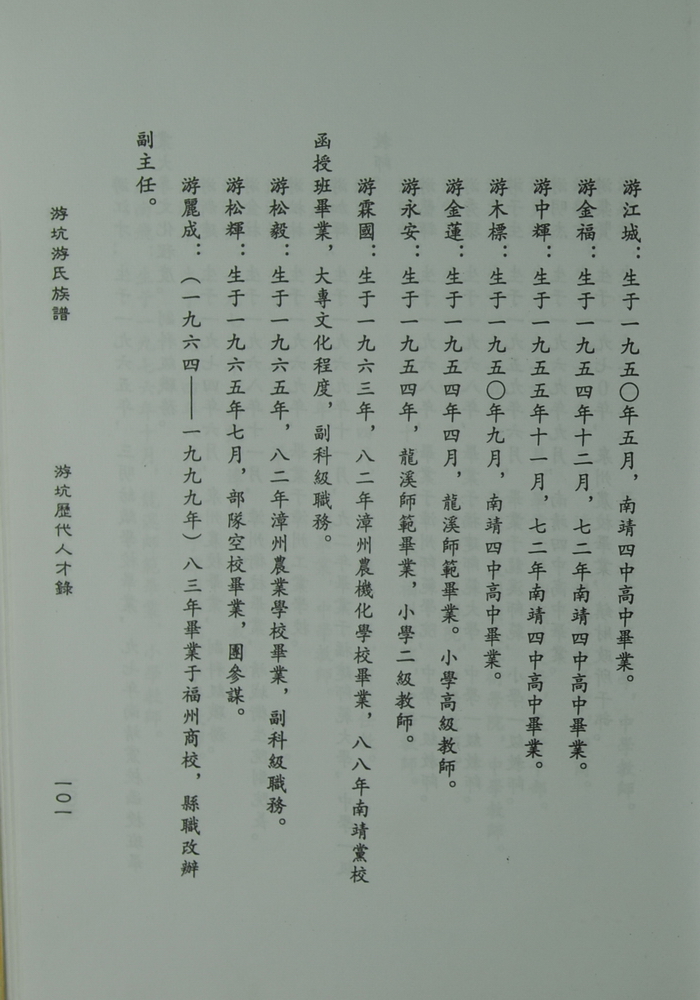 游江城：生于一九五〇年五月，南靖四中高中畢業。
游金福：生于一九五四年十二月，七二年南靖四中高中畢業。
游中輝：生于一九五五年十一月，七二年南靖四中高中畢業。
游木標：生于一九五〇年九月，南靖四中高中畢業。
游金蓮：生于一九五四年四月，龍溪師範畢業。小學高級教師。
游永安：生于一九五四年，龍溪師範畢業，小學二級教師。
游霖國：生于一九六三年，八二年漳州農機化學校畢業，八八年南靖黨校
函授班畢業，大專文化程度，副科級職務。
游松毅：生于一九六五年，八二年漳州農業學校畢業，副科級職務。
游松輝：生于一九六五年七月，部隊空校畢業，團參謀。
游麗成：（一九六四——一九九九年）八三年畢業于福州商校，縣職改辦
副主任。
游坑游氏族譜
游坑歷代人才錄
一〇一